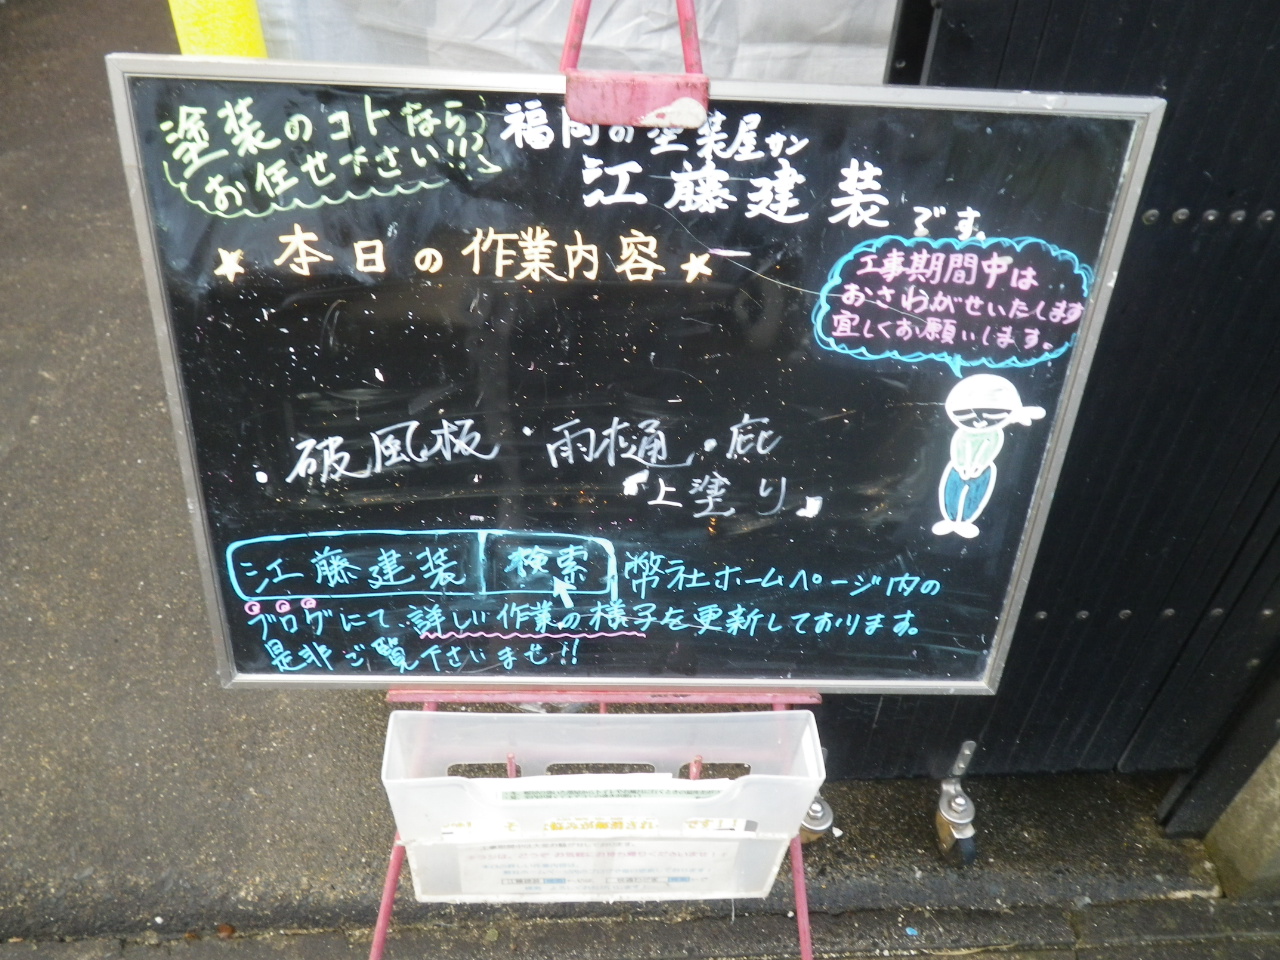 塗装のコトなら
お任せ下さい!!
福岡の塗装屋サン
江藤建装です。
★本日の作業内容★
工事期間中は
おさわがせいたします
宜しくお願いします。
・破風板・雨樋・庇
『上塗り』
江藤建装 検索 幣社ホームページ内の
ブログにて、詳しい作業の様子を更新しております。
是非ご覧下さいませ!!